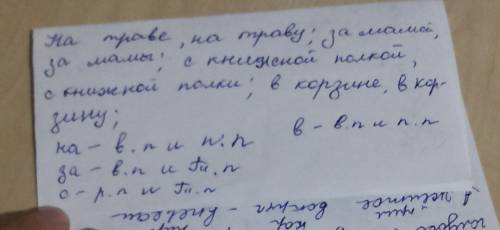 На траве, на траву; за мамой,
за мамы; с книжной полкой,
с книжной полки; в корзине, в кор-
зину;
на – в.п и п.п в – в.п и п.п
за – в.п и Тп.п
с – р.п и Тп.п